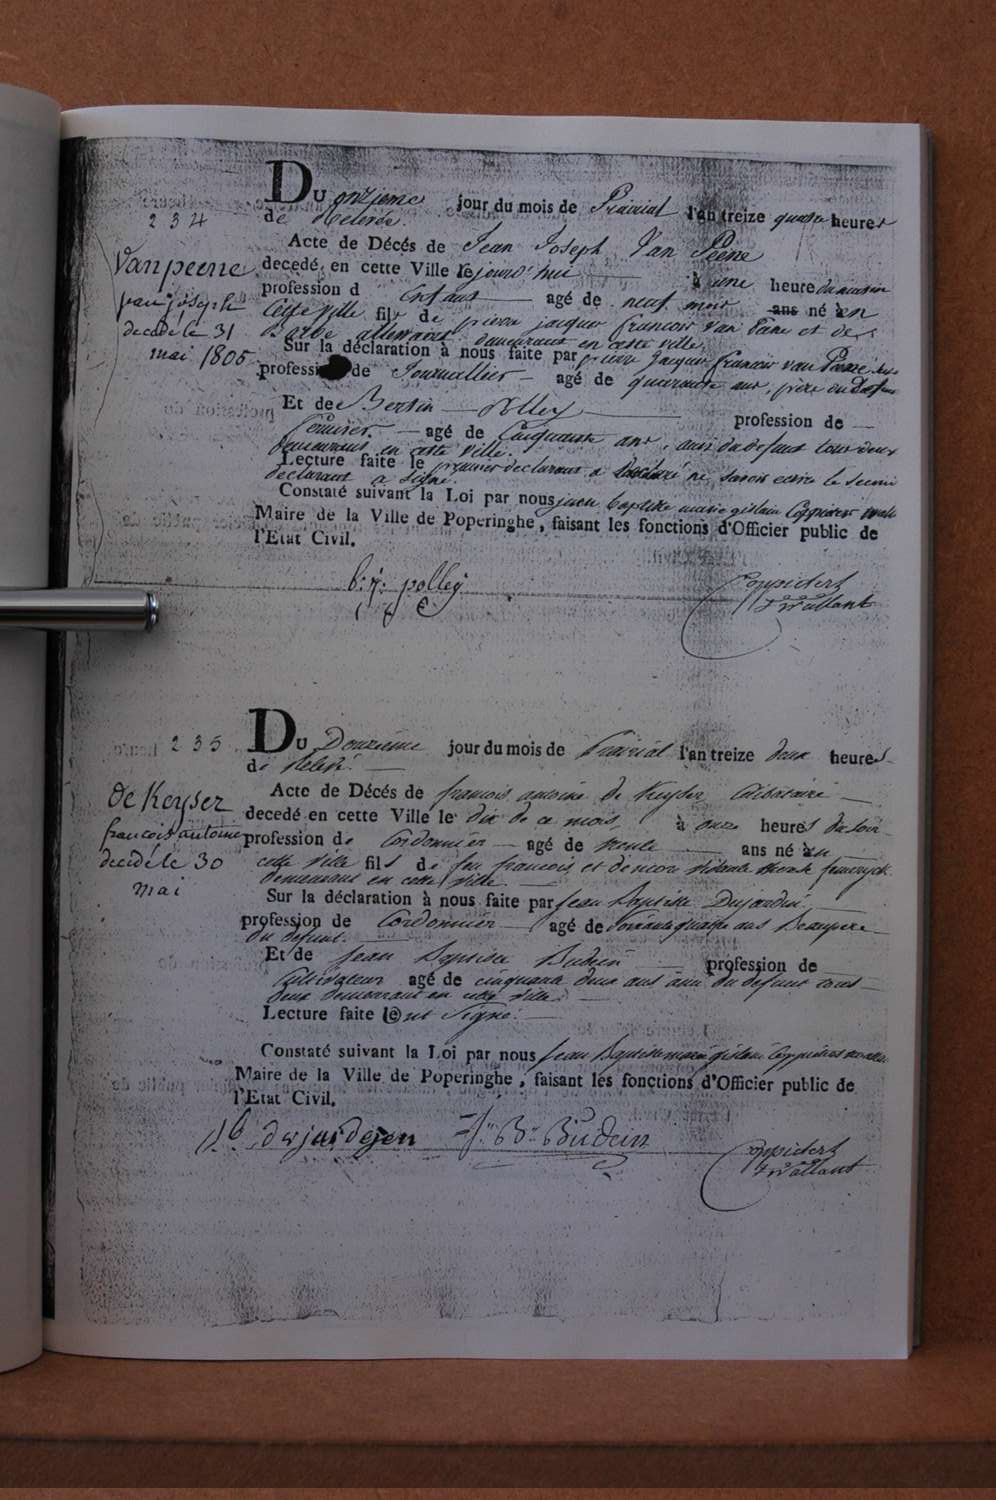 234
Vanpeene
jean joseph
decedé le 31
mai 1805
Du onzieme jour du mois de Prairial l'an treize quatre heures
de Relevée.
Acte de Décés de Jean Joseph Van Peene
decedé en cette Ville le jourd'hui à une heure du matin
profession d Enfant agé de neuf mois ans né en
Cette ville fils de pierre jacques francois Van Pene et de
Barbe demeurant en cette ville.
Sur la déclaration à nous faite par pierre Jacques francois van Peene
profession de Journallier agé de quarante ans, père du Defunt
Et de Bertin Polley profession de
agé de Cinquante ans, ami du defunt tous deux
demeurant en cette ville.
Lecture faite le premier declarant a declaré ne savoir ecrire le second
declarant a signé.
Constaté suivant la Loi par nous jean baptiste marie gislain Coppieters
Maire de la Ville de Poperinghe, faisant les fonctions d'Officier public de
l'Etat Civil.
b: j: polley
Coppieters
t'Wallant
235
De Keyser
francois antoine
decedé le 30
mai
Du Douzieme jour du mois de Prairial l'an treize deux heures
de Relevé.
Acte de Décés de francois antoine de Keyser Celibataire
decedé en cette Ville le dix de ce mois, à onze heures du soir
profession de Cordonnier agé de trente ans né en
cette ville fils de feu francois et de
demeurant en cette ville.
Sur la déclaration à nous faite par Jean Baptiste Dujardin
profession de Cordonnier agé de Soixante quatre ans Beaupere
du defunt.
Et de Jean Baptiste Budein profession de
Cultivateur agé de cinquante deux ans ami du defunt tous
deux demeurant en cette ville.
Lecture faite ont Signé.
Constaté suivant la Loi par nous Jean Baptiste marie gislain Coppieters
Maire de la Ville de Poperinghe, faisant les fonctions d'Officier public de
l'Etat Civil.
J b desjardejen J: B: Budein
Coppieters
t'Wallant